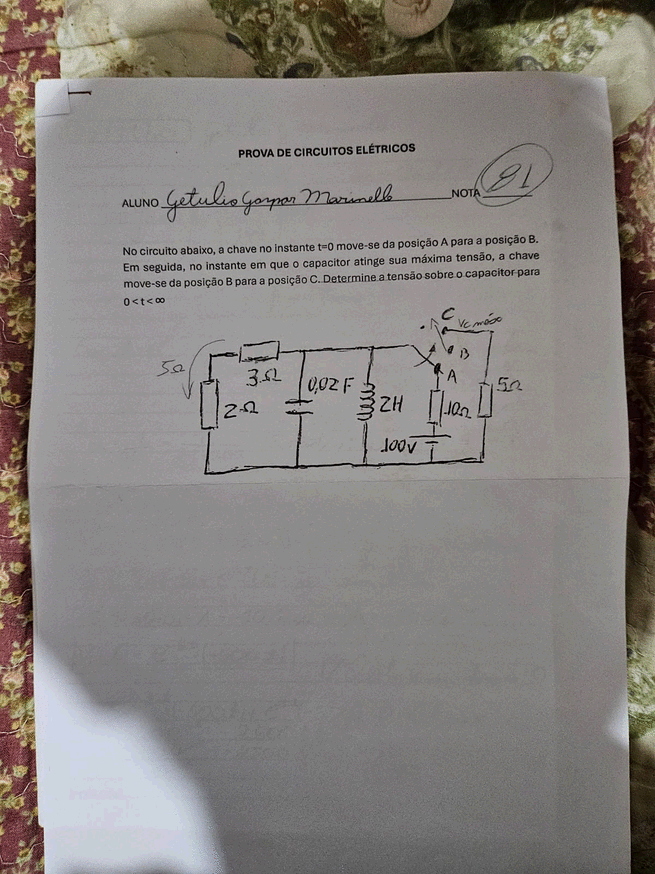 PROVA DE CIRCUITOS ELÉTRICOS
ALUNO Getulio Gaspar Marinello NOTA 81
No circuito abaixo, a chave no instante t=0 move-se da posição A para a posição B.
Em seguida, no instante em que o capacitor atinge sua máxima tensão, a chave
move-se da posição B para a posição C. Determine a tensão sobre o capacitor para
0 < t < ∞
C
Vc máx
B
A
5Ω
3Ω
2Ω
0,02 F
2H
10Ω
5Ω
100V